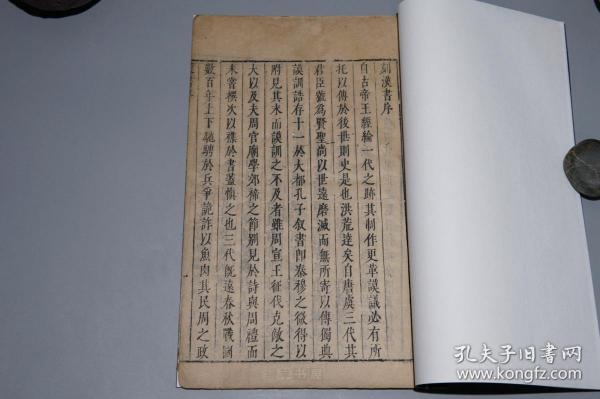 刻漢書序
自古帝王經綸一代之跡其制作更革謨議必有所
托以傳於後世則史是也洪荒逺矣自唐虞三代其
君臣號為賢聖尚以世遠磨滅而無所寄以傳獨典
謨訓誥存十一於大都孔子叙書即秦穆之微得以
附見其末而謨訓之不及者雖周宣王征伐克敵之
大以及夫周官廟學郊禘之節别見於詩與周禮而
未嘗撰次以襍於書蓋慎之也三代旣遠春秋戰國
數百年上下馳騁於兵爭詭詐以魚肉其民周之政
孔夫子旧书网
www.kongfz.com